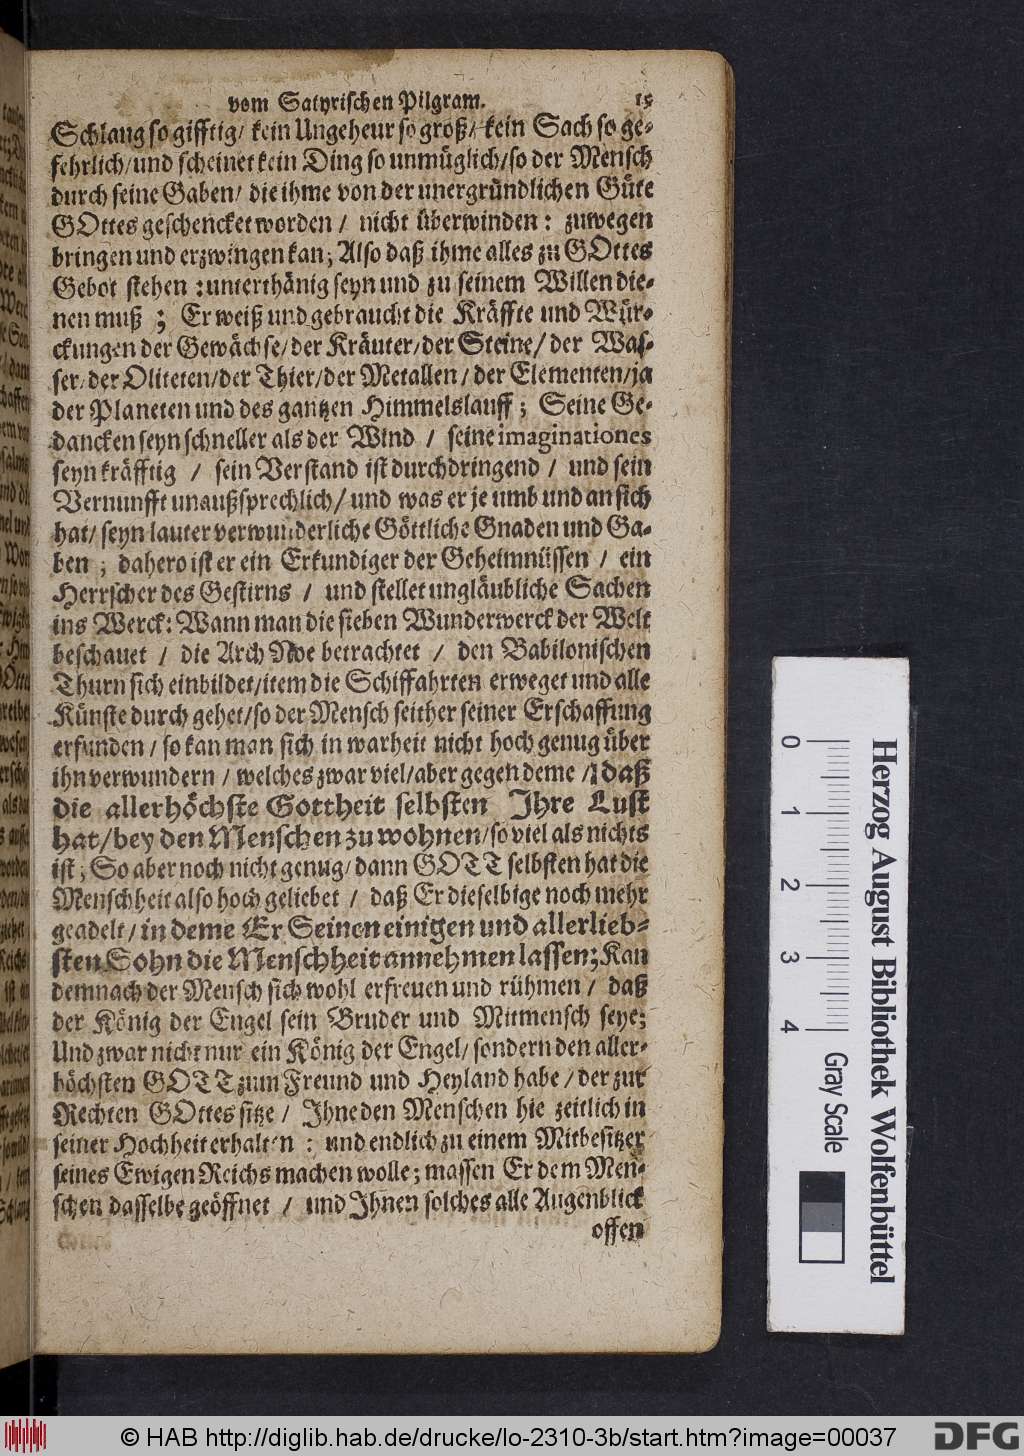 vom Satyrischen Pilgram. 15
Schlang so gifftig/ kein Ungeheur so groß/ kein Sach so ge-
fehrlich/ und scheinet kein Ding so unmüglich/ so der Mensch
durch seine Gaben/ die ihme von der unergründlichen Güte
GOttes geschencket worden / nicht überwinden: zuwegen
bringen und erzwingen kan; Also daß ihme alles zu GOttes
Gebot stehen : unterthänig seyn und zu seinem Willen die-
nen muß ; Er weiß und gebraucht die Kräffte und Wür-
ckungen der Gewächse/ der Kräuter/ der Steine/ der Was-
ser/ der Oliteten/ der Thier/ der Metallen / der Elementen/ ja
der Planeten und des gantzen Himmelslauff ; Seine Ge-
dancken seyn schneller als der Wind / seine imaginationes
seyn kräfftig / sein Verstand ist durchdringend / und sein
Vernunfft unaußsprechlich/ und was er je umb und an sich
hat/ seyn lauter verwunderliche Göttliche Gnaden und Ga-
ben ; dahero ist er ein Erkundiger der Geheimnüssen / ein
Herrscher des Gestirns / und stellet ungläubliche Sachen
ins Werck: Wann man die sieben Wunderwerck der Welt
beschauet / die Arch Noe betrachtet / den Babilonischen
Thurn sich einbildet/ item die Schiffahrten erweget und alle
Künste durch gehet/ so der Mensch seither seiner Erschaffung
erfunden / so kan man sich in warheit nicht hoch genug über
ihn verwundern / welches zwar viel/ aber gegen deme / daß
die allerhöchste Gottheit selbsten Jhre Lust
hat/ bey den Menschen zu wohnen/ so viel als nichts
ist ; So aber noch nicht genug/ dann GOTT selbsten hat die
Menschheit also hoch geliebet / daß Er dieselbige noch mehr
geadelt / in deme Er Seinen einigen und allerlieb-
sten Sohn die Menschheit annehmen lassen; Kan
demnach der Mensch sich wohl erfreuen und rühmen / daß
der König der Engel sein Bruder und Mitmensch seye;
Und zwar nicht nur ein König der Engel/ sondern den aller-
höchsten GOTT zum Freund und Heyland habe / der zur
Rechten GOttes sitze / Jhne den Menschen hie zeitlich in
seiner Hochheit erhalten : und endlich zu einem Mitbesitzer
seines Ewigen Reichs machen wolle; massen Er dem Men-
schen dasselbe geöffnet / und Jhnen solches alle Augenblick
offen
0 1 2 3 4
Gray Scale
Herzog August Bibliothek Wolfenbüttel
© HAB http://diglib.hab.de/drucke/lo-2310-3b/start.htm?image=00037
DFG